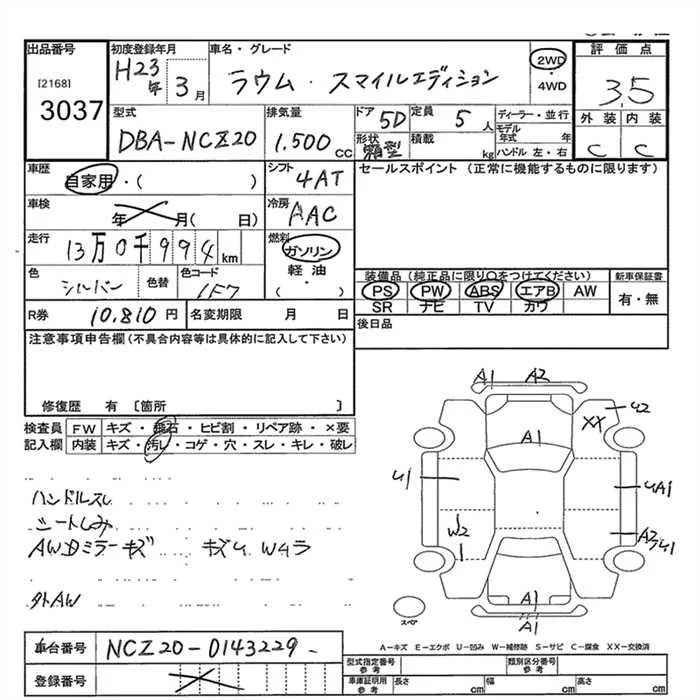 出品番号 初度登録年月 車名・グレード 評価点
[2168]
3037
H23年 3月 ラウム・スマイルエディション 2WD・4WD 3.5
外装 内装
C C
型式 排気量 ドア 定員 ディーラー・並行
DBA-NCZ20 1.500cc 5D 5人 モデル年式 年
形状 箱型 積載 kg ハンドル 左・右
車歴 自家用・( ) シフト 4AT セールスポイント (正常に機能するものに限ります)
車検 年 月( 日) 冷房 AAC
走行 13万0千994km 燃料 ガソリン
軽油
( ・ )
色 シルバー 色替 色コード 1F7
装備品(純正品に限り○をつけてください) 新車保証書
PS PW ABS エアB AW 有・無
SR ナビ TV カワ
R券 10,810円 名変期限 月 日 後日品
注意事項申告欄(不具合内容等は具体的に記入して下さい)
修復歴 有〔箇所 〕
検査員 FW キズ・飛石・ヒビ割・リペア跡・×要
記入欄 内装 キズ・汚レ・コゲ・穴・スレ・キレ・破レ
ハンドルスレ
シートしみ
AWDミラーキズ キズU W4ラ
外AW
A1 A2
XX U2
A1
U1 UA1
W2 A2 U1
A1
A1
スペア
A-キズ E-エクボ U-凹み W-補修跡 S-サビ C-腐食 XX-交換済
車台番号 NCZ20-0143229-
登録番号
型式指定番号 参考 類別区分番号 参考
車庫証明用 参考 長さ cm 幅 cm 高さ cm